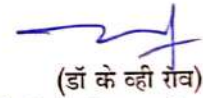 (डॉ के व्ही रॉव)